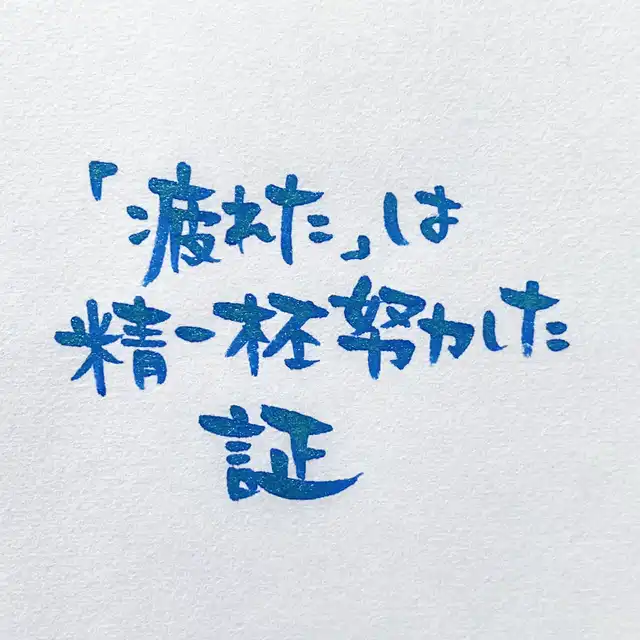 「疲れた」は
精一杯努力した
証